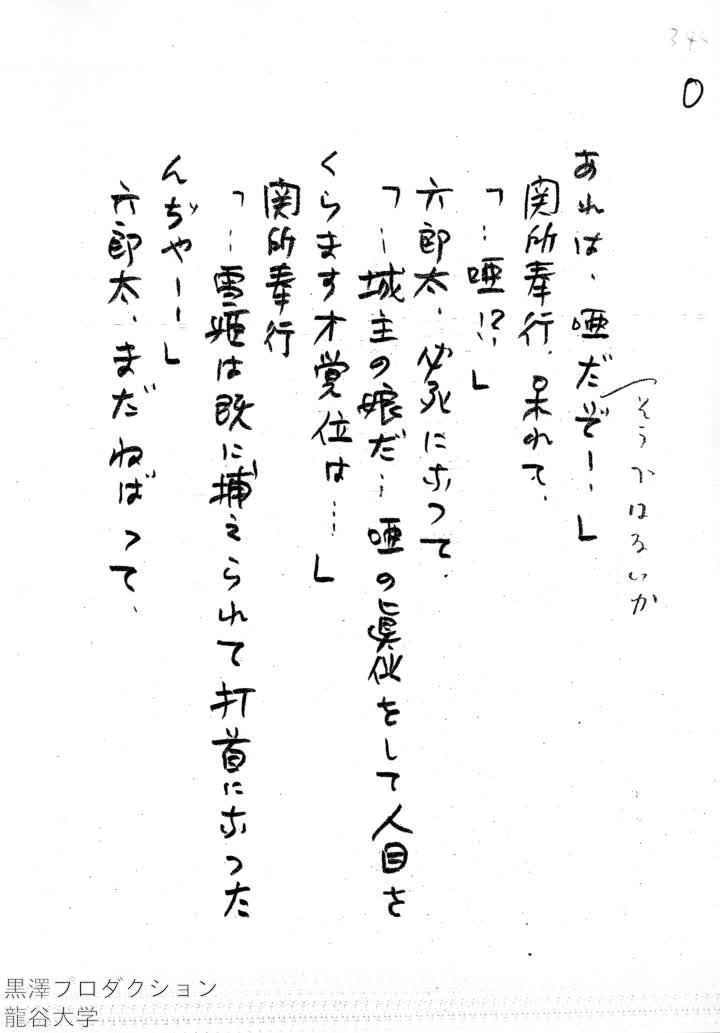 0
そうではないか
あれは、唖だぞ――」
関所奉行、呆れて、
「…唖!?」
六郎太、必死になつて、
「―城主の娘だ… 唖の眞似をして人目を
くらます才覚位は…」
関所奉行
「…雪姫は既に捕えられて打首になつた
んぢや――」
六郎太、まだねばつて、
黒澤プロダクション
龍谷大学